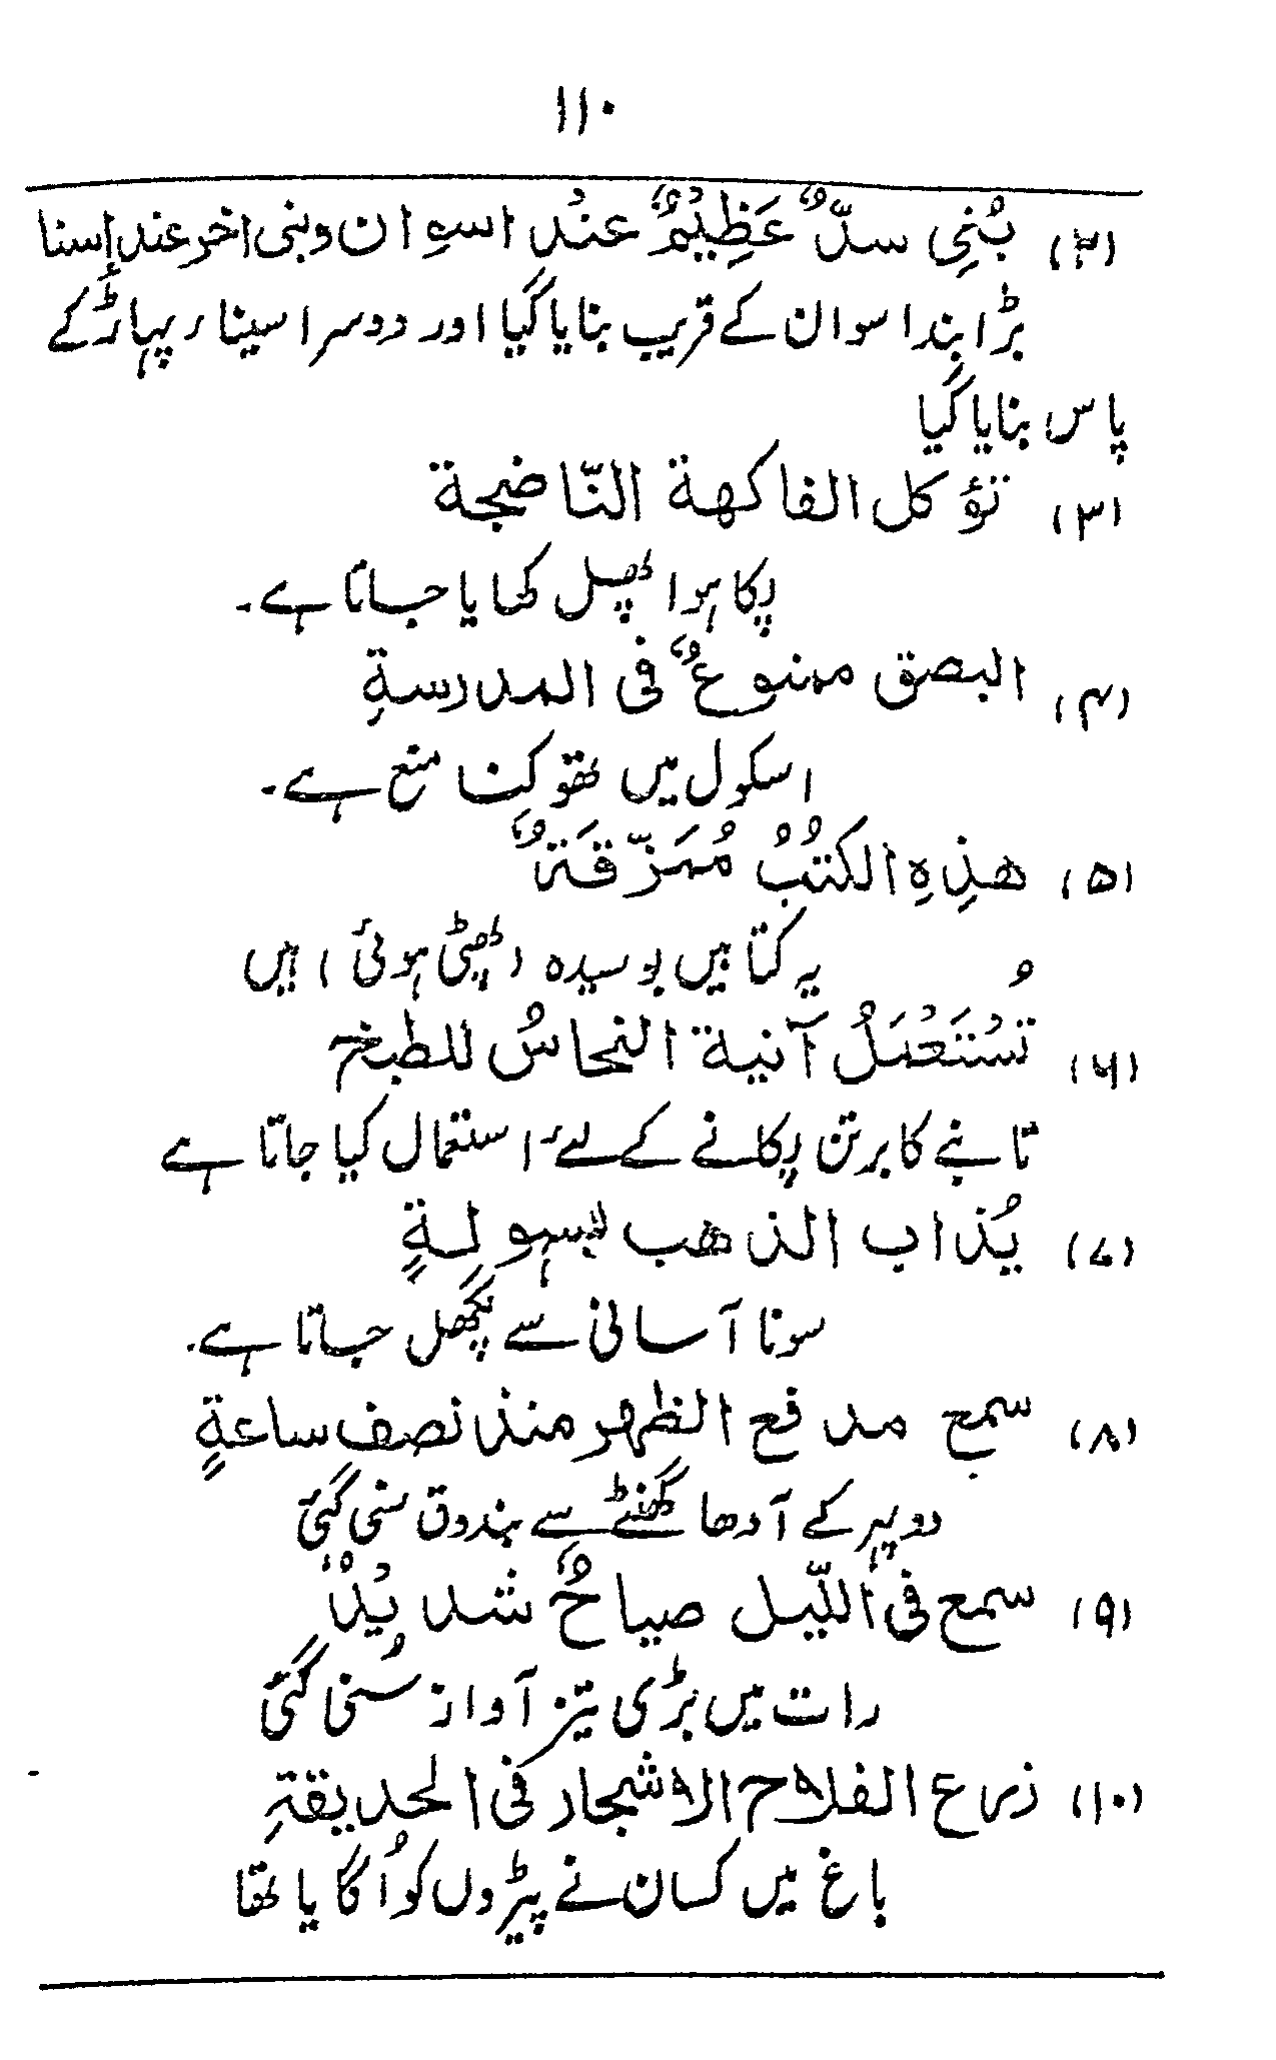 ۱۱۰
(۲) بُنِی سدٌّ عَظِیْمٌ عنْد اسوان وبنی اخر عند إسنا
بڑا بند اسوان کے قریب بنایا گیا اور دوسرا سینار پہاڑ کے
پاس بنایا گیا
(۳) تؤکل الفاکهة النّاضجة
پکا ہوا پھل کھایا جاتا ہے۔
(۴) البصق ممنوعٌ فی المدرسةِ
اسکول میں تھوکنا منع ہے۔
(۵) هذِهِ الکتُبُ مُمَزَّقَةٌ
یہ کتابیں بوسیدہ (پھٹی ہوئی) ہیں
(۶) تُسْتَعْمَلُ آنیة النحاسُ للطبخ
تانبے کا برتن پکانے کے لئے استعمال کیا جاتا ہے
(۷) یُذاب الذهب بسهولةٍ
سونا آسانی سے پگھل جاتا ہے۔
(۸) سمع مدفع الظهر منذ نصف ساعةٍ
دوپہر کے آدھا گھنٹے سے بندوق سنی گئی
(۹) سمع فی اللّیل صیاحٌ شدیْدٌ
رات میں بڑی تیز آواز سُنی گئی
(۱۰) زرع الفلاح الاشجار فی الحدیقةِ
باغ میں کسان نے پیڑوں کو اُگایا تھا